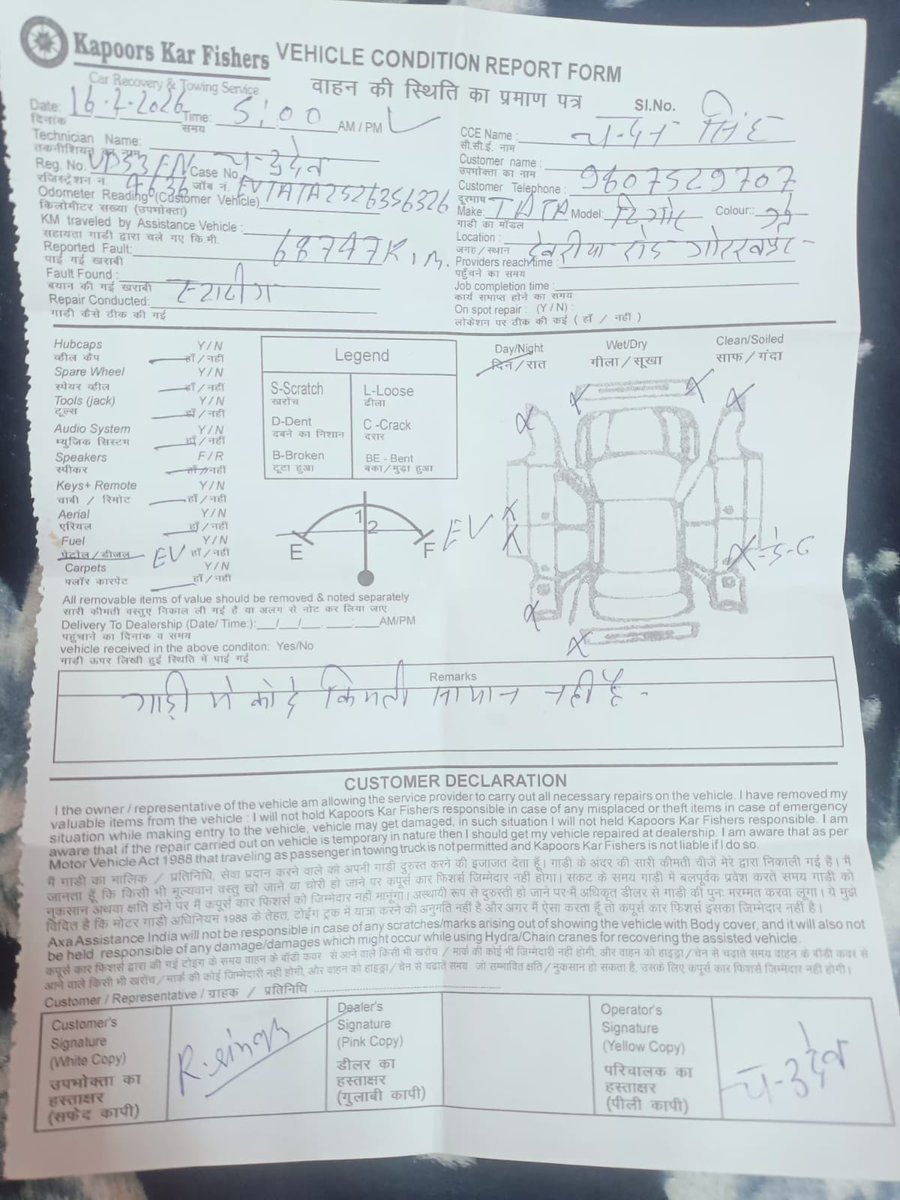 Kapoors Kar Fishers
Car Recovery & Towing Service
VEHICLE CONDITION REPORT FORM
वाहन की स्थिति का प्रमाण पत्र
Sl.No.
Date: 16-2-2026 Time: 5:00 AM / PM
दिनांक समय
CCE Name : चन्दन सिंह
सी.सी.ई. नाम
Technician Name:
तकनीशियत का नाम
Customer name :
उपभोक्ता का नाम
Reg. No. UP53FN 4636 Case No. चन्द्रदेव
रजिस्ट्रेशन नं. जॉब नं. EVTATA2526356326
Customer Telephone : 9807529707
दूरभाष
Odometer Reading (Customer Vehicle)
किलोमीटर संख्या (उपभोक्ता)
Make: TATA Model: टिगोर Colour:: ग्रे
गाडी का मॉडल
KM traveled by Assistance Vehicle :
सहायता गाडी द्वारा चले गए कि.मी.
Location : देवरीया रोड गोरखपुर
जगह / स्थान
Reported Fault: 68747K.m.
पाई गई खराबी
Providers reach time :
पहुँचने का समय
Fault Found :
बयान की गई खराबी स्टार्टींग
Job completion time :
कार्य समाप्त होने का समय
Repair Conducted:
गाडी कैसे ठीक की गई
On spot repair : (Y / N) :
लोकेशन पर ठीक की कई ( हाँ / नहीं )
Hubcaps Y/N
व्हील कैप हाँ/नहीं
Spare Wheel Y/N
स्पेयर व्हील हाँ/नहीं
Tools (jack) Y/N
टूल्स हाँ/नहीं
Audio System Y/N
म्युजिक सिस्टम हाँ/नहीं
Speakers F/R
स्पीकर हाँ/नहीं
Keys+ Remote Y/N
चाबी / रिमोट हाँ/नहीं
Aerial Y/N
एरियल हाँ/नहीं
Fuel Y/N
पेट्रोल/डीजल EV हाँ/नहीं
Carpets Y/N
फ्लॉर कारपेट हाँ/नहीं
Legend
S-Scratch L-Loose
खरोंच ढीला
D-Dent C -Crack
दबने का निशान दरार
B-Broken BE - Bent
टूटा हुआ बका/मुढ़ा हुआ
E 1 2 F EV
Day/Night Wet/Dry Clean/Soiled
दिन/रात गीला/सूखा साफ/गंदा
All removable items of value should be removed & noted separately
सारी कीमती वस्तुए निकाल ली गई है या अलग से नोट कर लिया जाए
Delivery To Dealership (Date/ Time:)___/___/___ ___:___AM/PM
पहुंचाने का दिनांक व समय
vehicle received in the above conditon: Yes/No
गाडी ऊपर लिखी हुई स्थिति में पाई गई
Remarks
गाड़ी मे कोई किमती सामान नहीं है -
CUSTOMER DECLARATION
I the owner / representative of the vehicle am allowing the service provider to carry out all necessary repairs on the vehicle. I have removed my
valuable items from the vehicle : I will not hold Kapoors Kar Fishers responsible in case of any misplaced or theft items in case of emergency
situation while making entry to the vehicle, vehicle may get damaged, in such situation I will not held Kapoors Kar Fishers responsible. I am
aware that if the repair carried out on vehicle is temporary in nature then I should get my vehicle repaired at dealership. I am aware that as per
Motor Vehicle Act 1988 that traveling as passenger in towing truck is not permitted and Kapoors Kar Fishers is not liable if I do so.
मैं गाडी का मालिक / प्रतिनिधि, सेवा प्रदान करने वाले को अपनी गाडी दुरुस्त करने की इजाजत देता हूँ। गाडी के अंदर की सारी कीमती चीजें मेरे द्वारा निकाली गई है। मैं
जानता हूँ कि किसी भी मूल्यवान वस्तु खो जाने या चोरी हो जाने पर कपूर्स कार फिशर्स जिम्मेदार नहीं होगा। संकट के समय गाडी में बलपूर्वक प्रवेश करते समय गाडी को
नुकसान अथवा क्षति होने पर मैं कपूर्स कार फिशर्स को जिम्मेदार नहीं मानूंगा। अस्थायी रूप से दुरुस्ती हो जाने पर मैं अधिकृत डीलर से गाडी की पुनः मरम्मत करवा लूंगा। ये मुझे
विदित है कि मोटर गाडी अधिनियम 1988 के तेहत, टोइंग ट्रक में यात्रा करने की अनुमति नहीं है और अगर मैं ऐसा करता हूँ तो कपूर्स कार फिशर्स इसका जिम्मेदार नहीं है।
Axa Assistance India will not be responsible in case of any scratches/marks arising out of showing the vehicle with Body cover, and it will also not
be held responsible of any damage/damages which might occur while using Hydra/Chain cranes for recovering the assisted vehicle.
कपूर्स कार फिशर्स द्वारा की गई टोइंग के समय वाहन के बॉडी कवर से आने वाले किसी भी खरोंच / मार्क की कोई जिम्मेदारी नहीं होगी, और वाहन को हाइड्रा/ चेन से चढाते समय वाहन के बॉडी कवर से
आने वाले किसी भी खरोंच / मार्क की कोई जिम्मेदारी नहीं होगी, और वाहन को हाइड्रा/ चेन से चढाते समय जो सम्भावित क्षति / नुकसान हो सकता है, उसके लिए कपूर्स कार फिशर्स जिम्मेदार नहीं होगी।
Customer / Representative / ग्राहक / प्रतिनिधि
Customer's Signature (White Copy)
उपभोक्ता का हस्ताक्षर (सफेद कापी)
R. singh
Dealer's Signature (Pink Copy)
डीलर का हस्ताक्षर (गुलाबी कापी)
Operator's Signature (Yellow Copy)
परिचालक का हस्ताक्षर (पीली कापी)
चन्द्रदेव